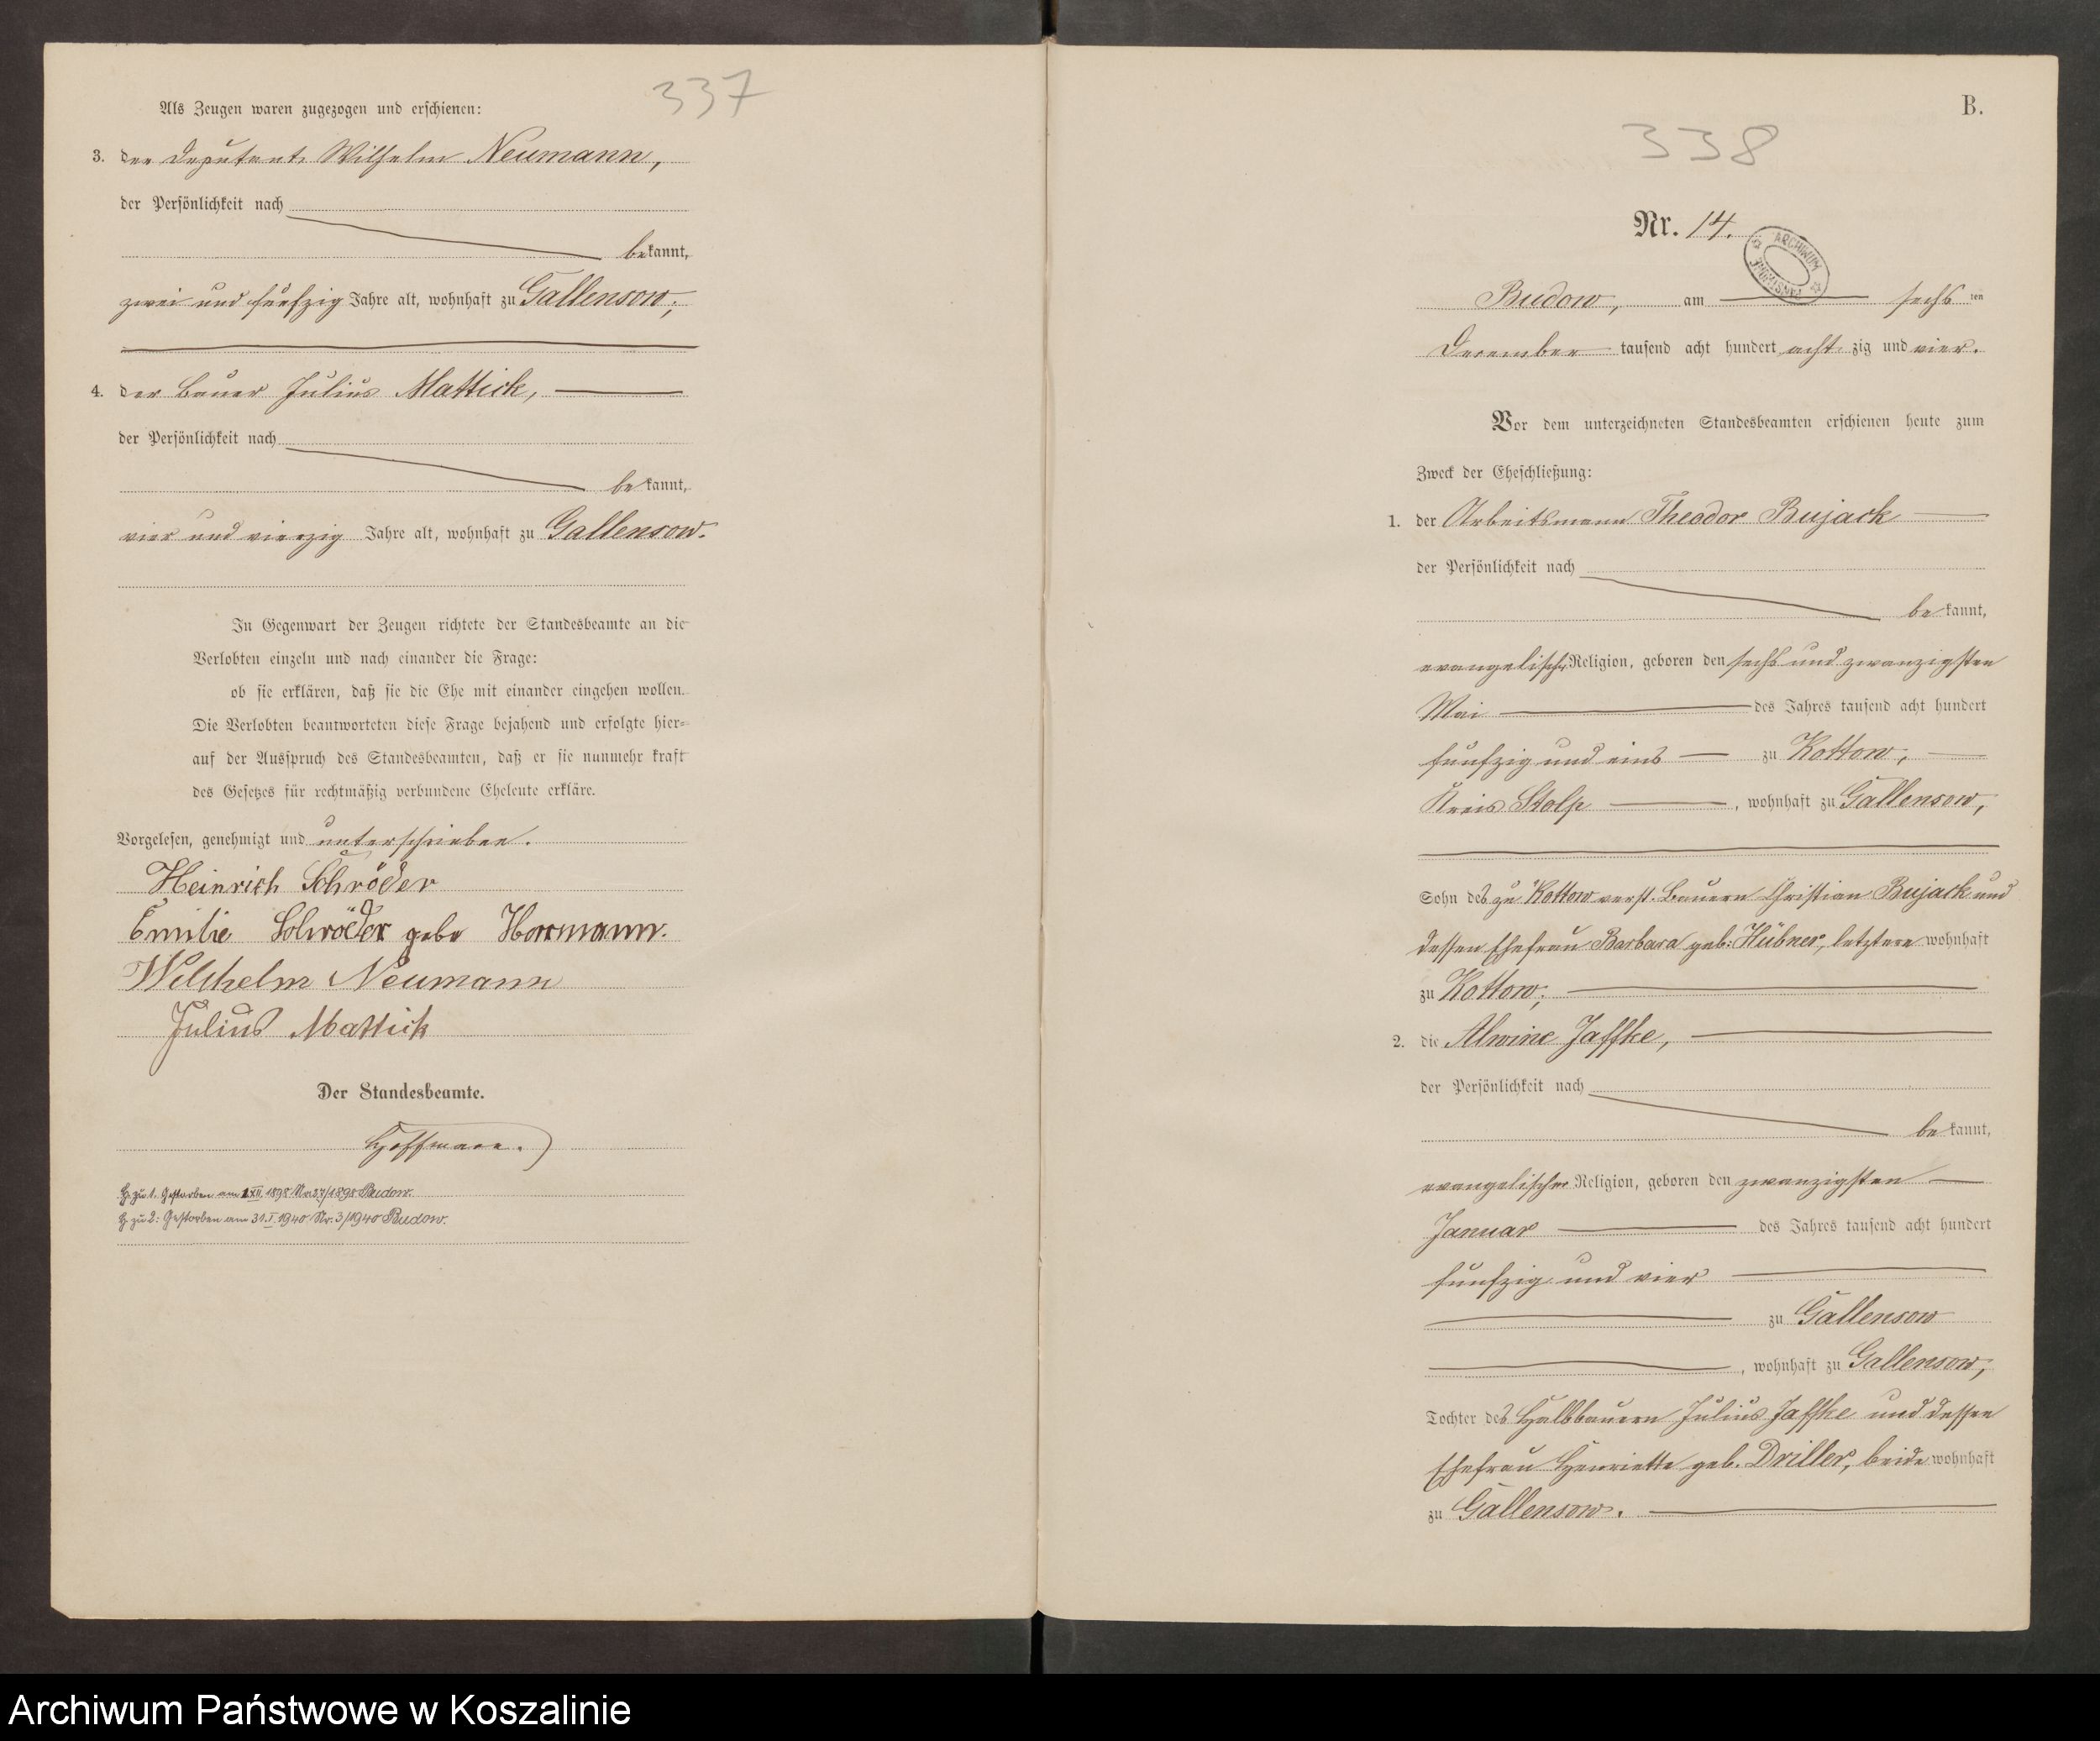 337
Als Zeugen waren zugezogen und erschienen:
3. der Deputant Wilhelm Neumann,
der Persönlichkeit nach
bekannt,
zwei und fünfzig Jahre alt, wohnhaft zu Gallensow;
4. der Bauer Julius Mattick,
der Persönlichkeit nach
bekannt,
vier und vierzig Jahre alt, wohnhaft zu Gallensow.
In Gegenwart der Zeugen richtete der Standesbeamte an die
Verlobten einzeln und nach einander die Frage:
ob sie erklären, daß sie die Ehe mit einander eingehen wollen.
Die Verlobten beantworteten diese Frage bejahend und erfolgte hier-
auf der Ausspruch des Standesbeamten, daß er sie nunmehr kraft
des Gesetzes für rechtmäßig verbundene Eheleute erkläre.
Vorgelesen, genehmigt und unterschrieben.
Heinrich Schröder
Emilie Schröder gebo Horrmann.
Wilchelm Neumann
Julius Mattick
Der Standesbeamte.
Hoffmann.
H. zu 1. Gestorben am XII. 1898 Budow.
H. zu 2: Gestorben am 31.I.1940 Nr. 3/1940 Budow.
B.
338
Nr. 14.
ARCHIWUM
Budow, am sechs ten
December tausend acht hundert acht zig und vier.
Vor dem unterzeichneten Standesbeamten erschienen heute zum
Zweck der Eheschließung:
1. der Arbeitsmann Theodor Bujack
der Persönlichkeit nach
bekannt,
evangelischer Religion, geboren den sechs und zwanzigsten
Mai des Jahres tausend acht hundert
fünfzig und eins zu Kottow,
Kreis Stolp, wohnhaft zu Gallensow,
Sohn des zu Kottow verst. Bauern Christian Bujack und
dessen Ehefrau Barbara geb: Hübner, letztere wohnhaft
zu Kottow;
2. die Alwine Jaffke,
der Persönlichkeit nach
bekannt,
evangelischer Religion, geboren den zwanzigsten
Januar des Jahres tausend acht hundert
fünfzig und vier
zu Gallensow
, wohnhaft zu Gallensow,
Tochter des Halbbauern Julius Jaffke und dessen
Ehefrau Henriette geb. Driller, beide wohnhaft
zu Gallensow.
Archiwum Państwowe w Koszalinie